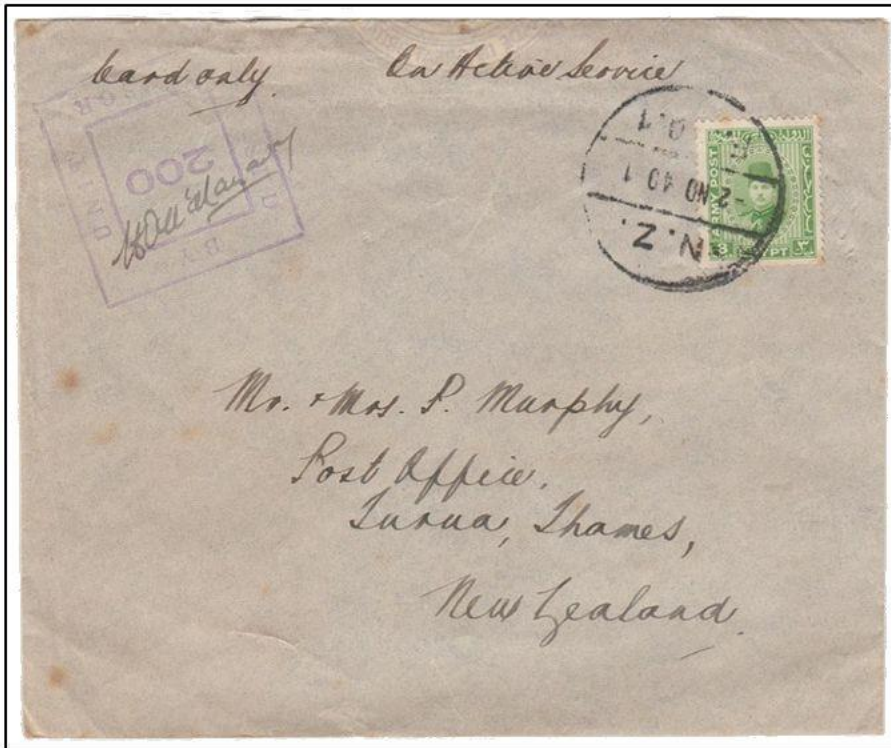 Card only. On Active Service
200
BY
UNIT
N.Z.
-2 NO 40 1
ARMY POST
3
Mr. & Mrs. P. Murphy,
Post Office,
Turua, Thames,
New Zealand.